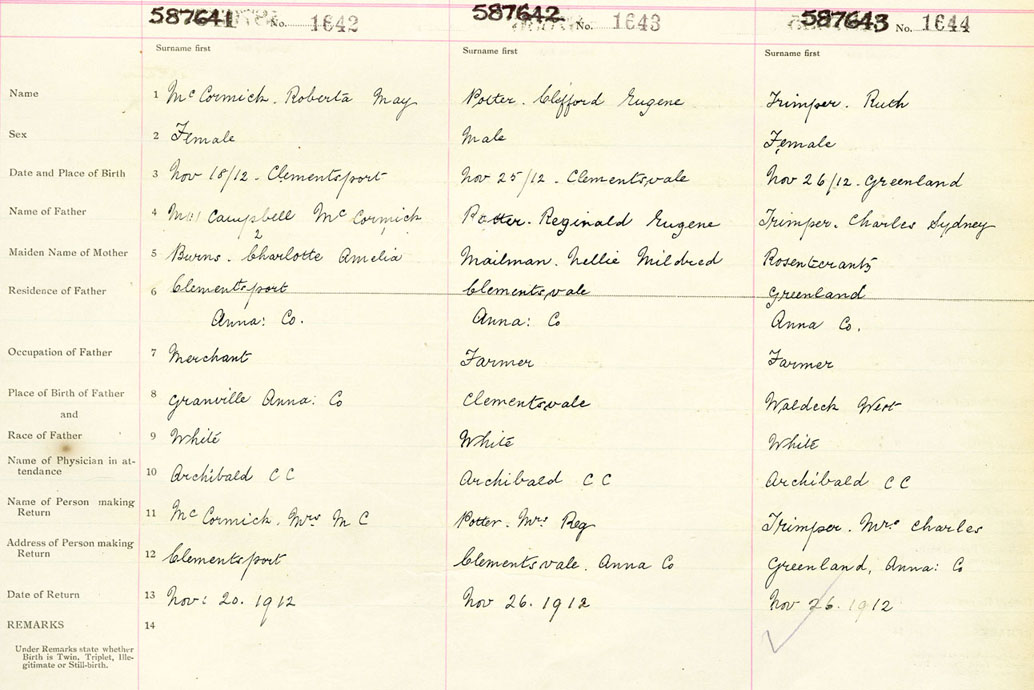 587641 No. 1642 587642 No. 1643 587643 No. 1644
Surname first Surname first Surname first
Name 1 McCormick. Roberta May Potter. Clifford Eugene Trimper. Ruth
Sex 2 Female Male Female
Date and Place of Birth 3 Nov 18/12 - Clementsport Nov 25/12 - Clementsvale Nov 26/12 - Greenland
Name of Father 4 Campbell McCormick Potter. Reginald Eugene Trimper. Charles Sydney
2
Maiden Name of Mother 5 Burns. Charlotte Amelia Mailman. Nellie Mildred Rosentcrantz
Residence of Father 6 Clementsport Clementsvale Greenland
Anna: Co. Anna: Co Anna Co.
Occupation of Father 7 Merchant Farmer Farmer
Place of Birth of Father 8 Granville Anna: Co Clementsvale Waldeck West
and
Race of Father 9 White White White
Name of Physician in at-
tendance 10 Archibald C C Archibald C C Archibald C C
Name of Person making
Return 11 McCormick. Mrs M C Potter. Mrs Reg Trimper. Mrs Charles
Address of Person making
Return 12 Clementsport Clementsvale. Anna Co Greenland, Anna: Co
Date of Return 13 Nov: 20. 1912 Nov 26. 1912 Nov 26. 1912
REMARKS 14
Under Remarks state whether
Birth is Twin, Triplet, Ille-
gitimate or Still-birth.